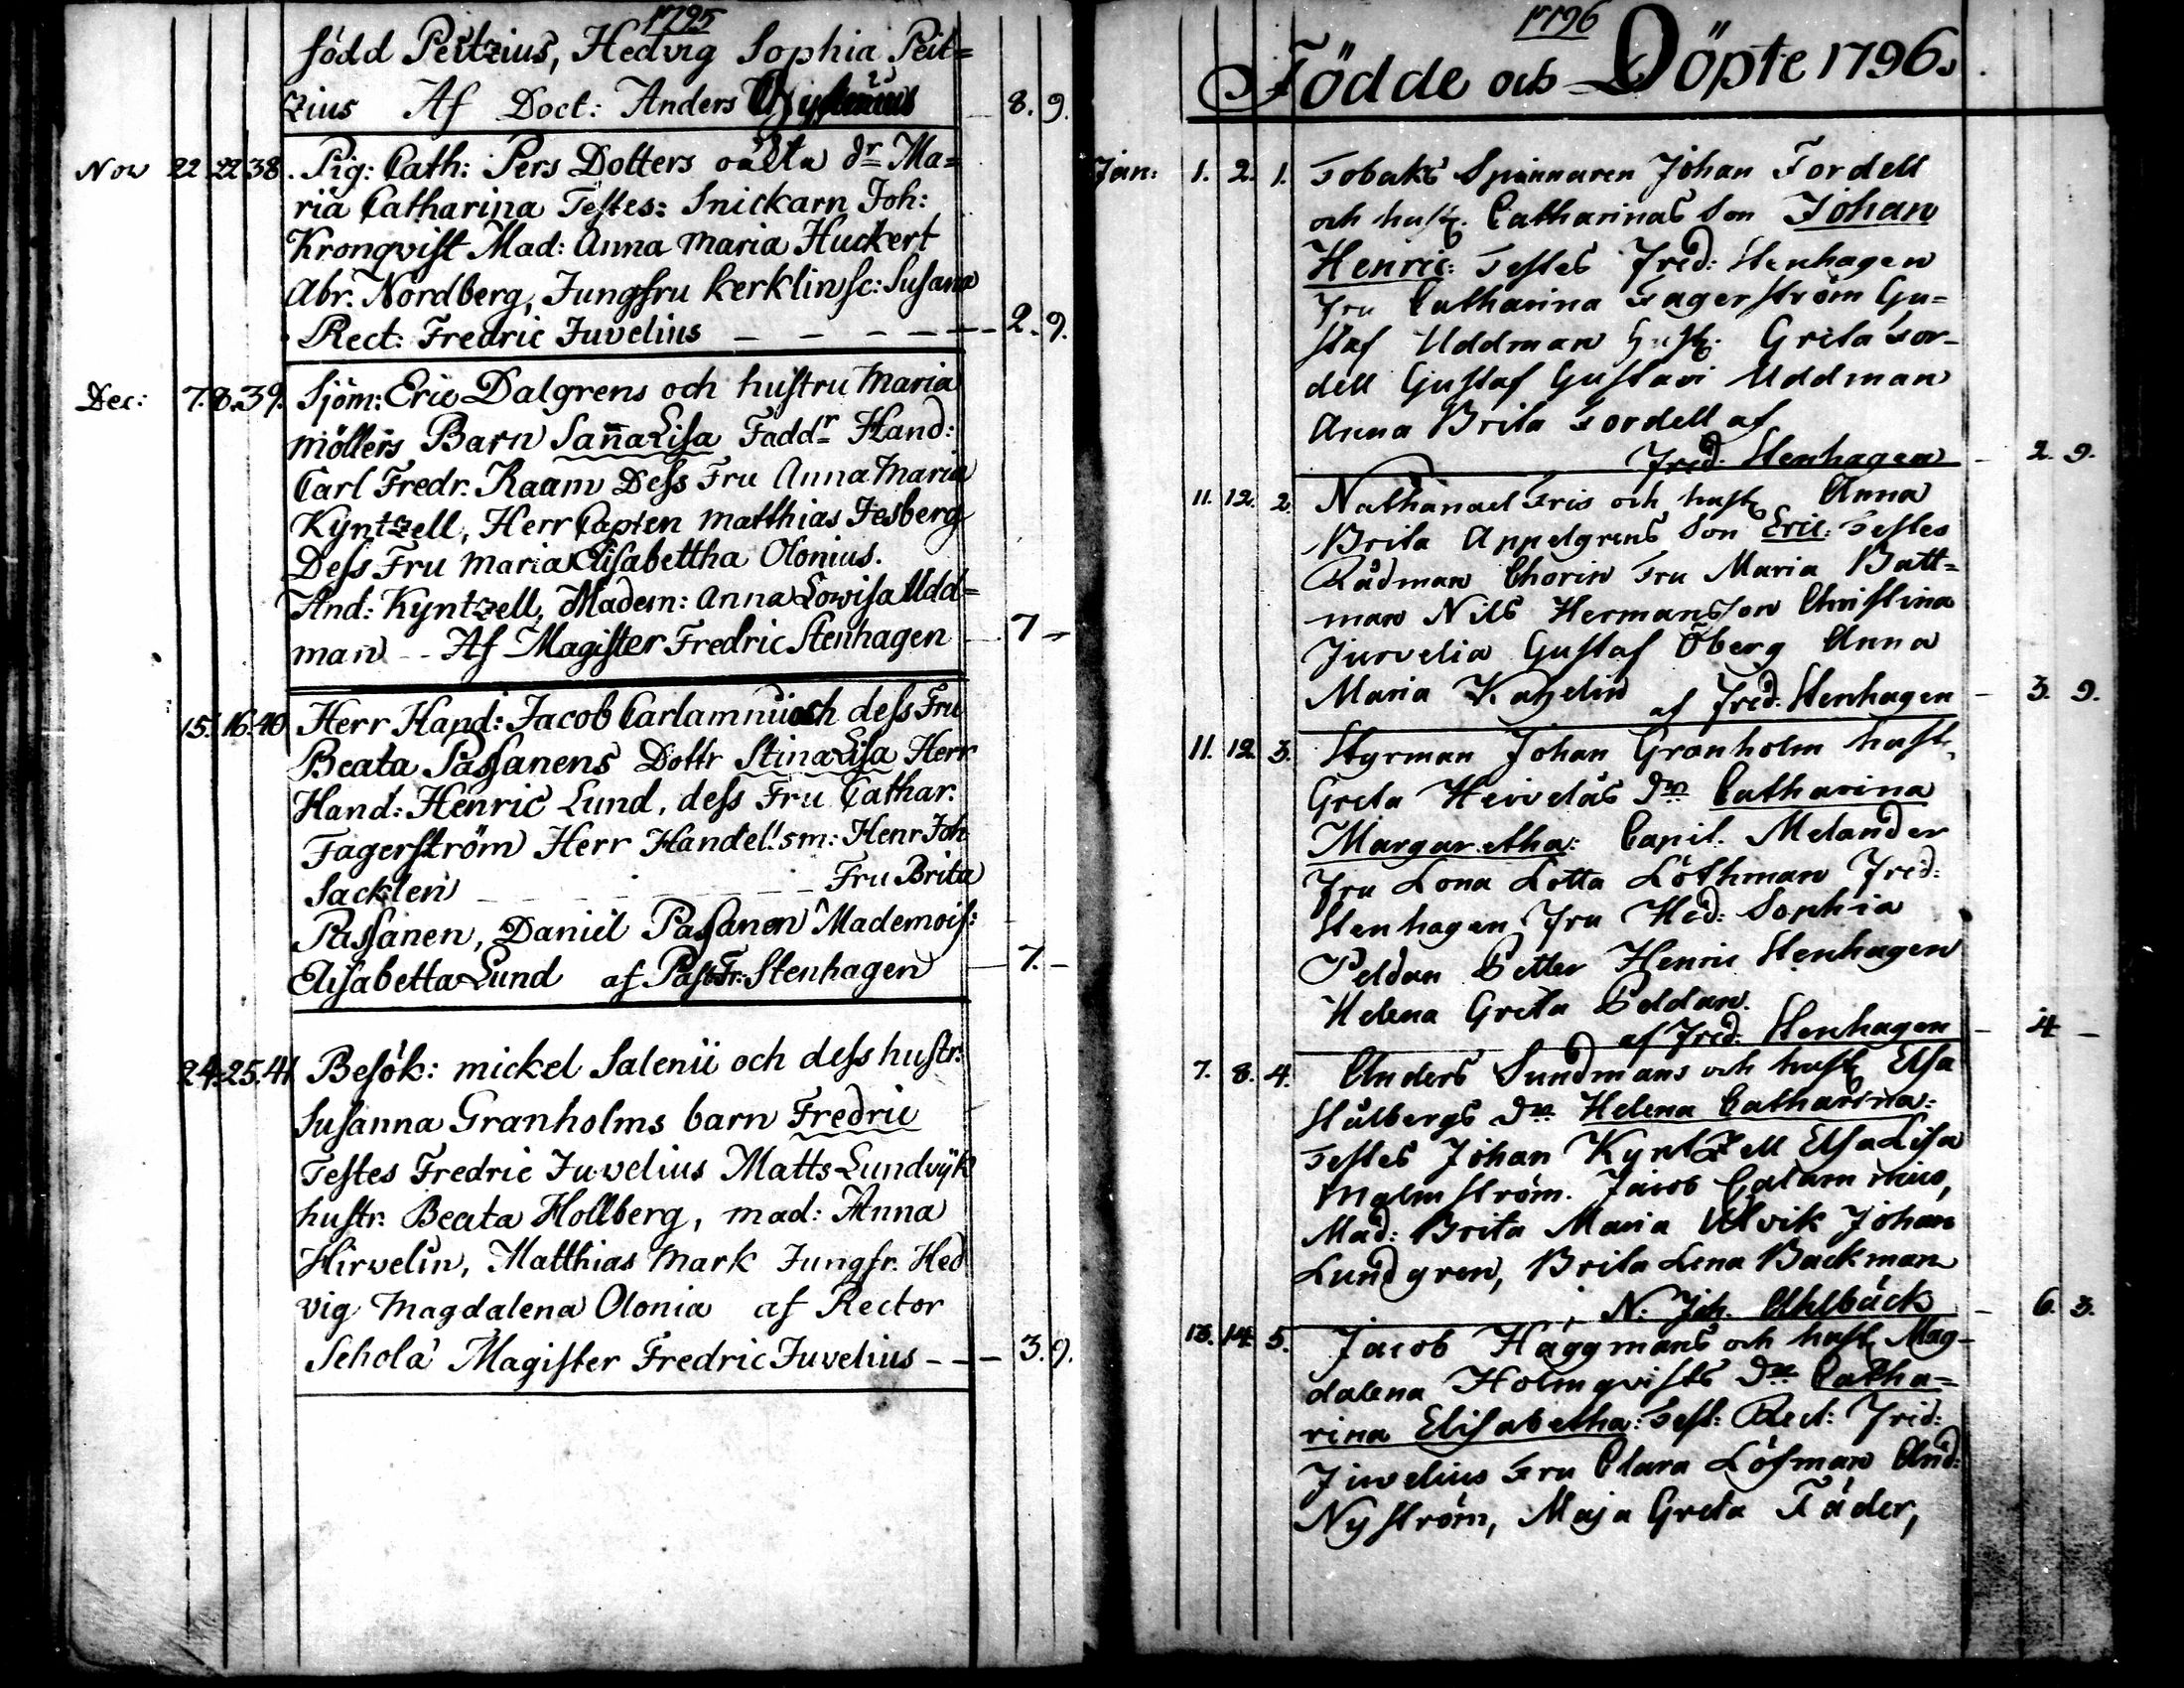 1795
född Peitzius, Hedvig Sophia Peit=
zius Af Doct: Anders 8. 9.
Nov 22 22 38. Pig: Cath: Pers Dotters oäkta dr Ma=
ria Catharina Testes: Snickarn Joh:
Kronqvist Mad: Anna Maria Huckert
Abr. Nordberg, Jungfru kerklin sc: Susana
Rect: Fredric Juvelius — — — — 2. 9.
Dec: 7. 8. 39. Sjöm: Eric Dalgrens och hustru Maria
möllers Barn Sanna Lisa Faddr Hand:
Carl Fredr. Raam Dess Fru Anna Maria
Kyntzell, Herr Capten Matthias Fesberg
Dess Fru Maria Elisabettha Olonius.
And: Kyntzell, Madem: Anna Lowisa Udd=
man -- Af Magister Fredric Stenhagen 7 -
15. 16. 40 Herr Hand: Jacob Carlamnii och dess Fru
Beata Passanens Dottr Stina Lisa Herr
Hand: Henric Lund, dess Fru Cathar.
Fagerström Herr Handel!sm: Henr Joh
Sacklen - - - - - - Fru Brita
Passanen, Daniel Passanen ^ Mademois:
Elisabetta Lund af Past Fr: Stenhagen 7. -
24. 25. 41 Besök: mickel Salenii och dess hustr:
Susanna Granholms barn Fredric
Testes Fredric Juvelius Matts Lundvÿk
hustr. Beata Hollberg, mad: Anna
Hirvelin, Matthias Mark Jungfr. Hed
vig Magdalena Olonia af Rector
Schola Magister Fredric Juvelius - - - 3. 9.
1796
Födde och Döpte 1796.
Jan: 1. 2. 1. Tobaks Spinnaren Johan Fordell
och hust. Catharinas Son Johan
Henric: Testes Fred: Stenhagen
Fru Catharina Fagerström Gu=
staf Uddman Hust. Greta For-
dell Gustaf Gustavi Uddman
Anna Brita Fordell af
Fred: Stenhagen - 2. 9.
11. 12. 2. Nathanael Fris och hust Anna
Brita Appelgrens Son Eric: Testes
Rådman Chorin Fru Maria Batt=
man Nils Hermansson Christina
Juvelia Gustaf Öberg Anna
Maria Kahelin af Fred: Stenhagen - 3. 9.
11. 12. 3. Styrman Johan Granholm hust
Greta Hervelas Dr Catharina
Margaretha: Capit. Melander
Fru Lona Lotta Löthman Fred:
Stenhagen, Fru Hed: Sophia
Peldan Petter Henric Stenhagen
Helena Greta Peldan.
af Fred: Stenhagen - 4 -
7. 8. 4. Anders Sundmans och hust Elsa
Stålbergs Dr Helena Catharina:
Testes Johan Kyntzell Elsa Lisa
Malmström. Jacob Calamnius,
Mad: Brita Maria Ulvik Johan
Lundgren, Brita Lena Backman
N: Joh. Ahlbäck - 6. 3.
13. 14. 5. Jacob Häggmans och hust Mag-
dalena Holmqvists Dr Catha=
rina Elisabetha: Test: Rect: Fred:
Juvelius Fru Clara Löfman And:
Nyström, Maja Greta Fäder,